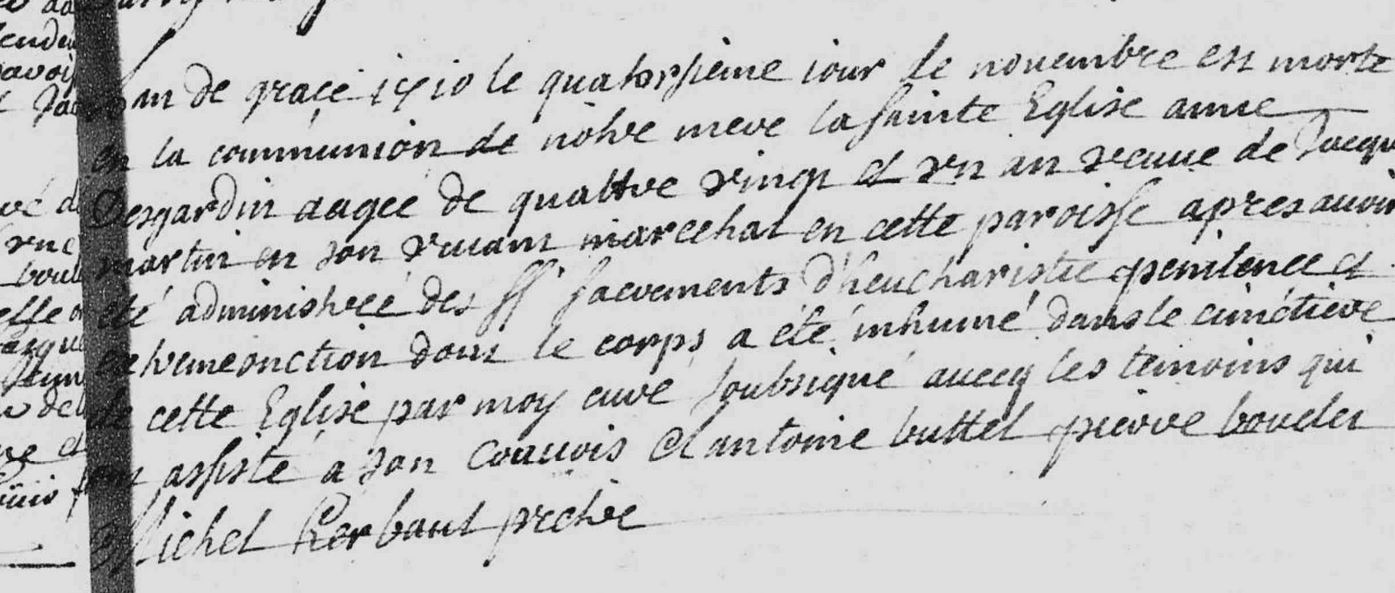 l'an de grace 1710 le quatorsieme iour de nouembre est morte
en la communion de nôtre mere la sainte Eglise anne
Desgardin aagee de quattre vingt et vn an veuue de Jacque
martin en son viuant marechal en cette paroisse apres auoir
été administree des SSt sacrements d'heucharistie penitence et
extremeonction dont le corps a été inhumé dans le cimetiere
de cette Eglise par moy curé soubsigné auecq les temoins qui
ont assisté a son conuois Antoine buttel pierre bouclet
Michel herbaut pretre